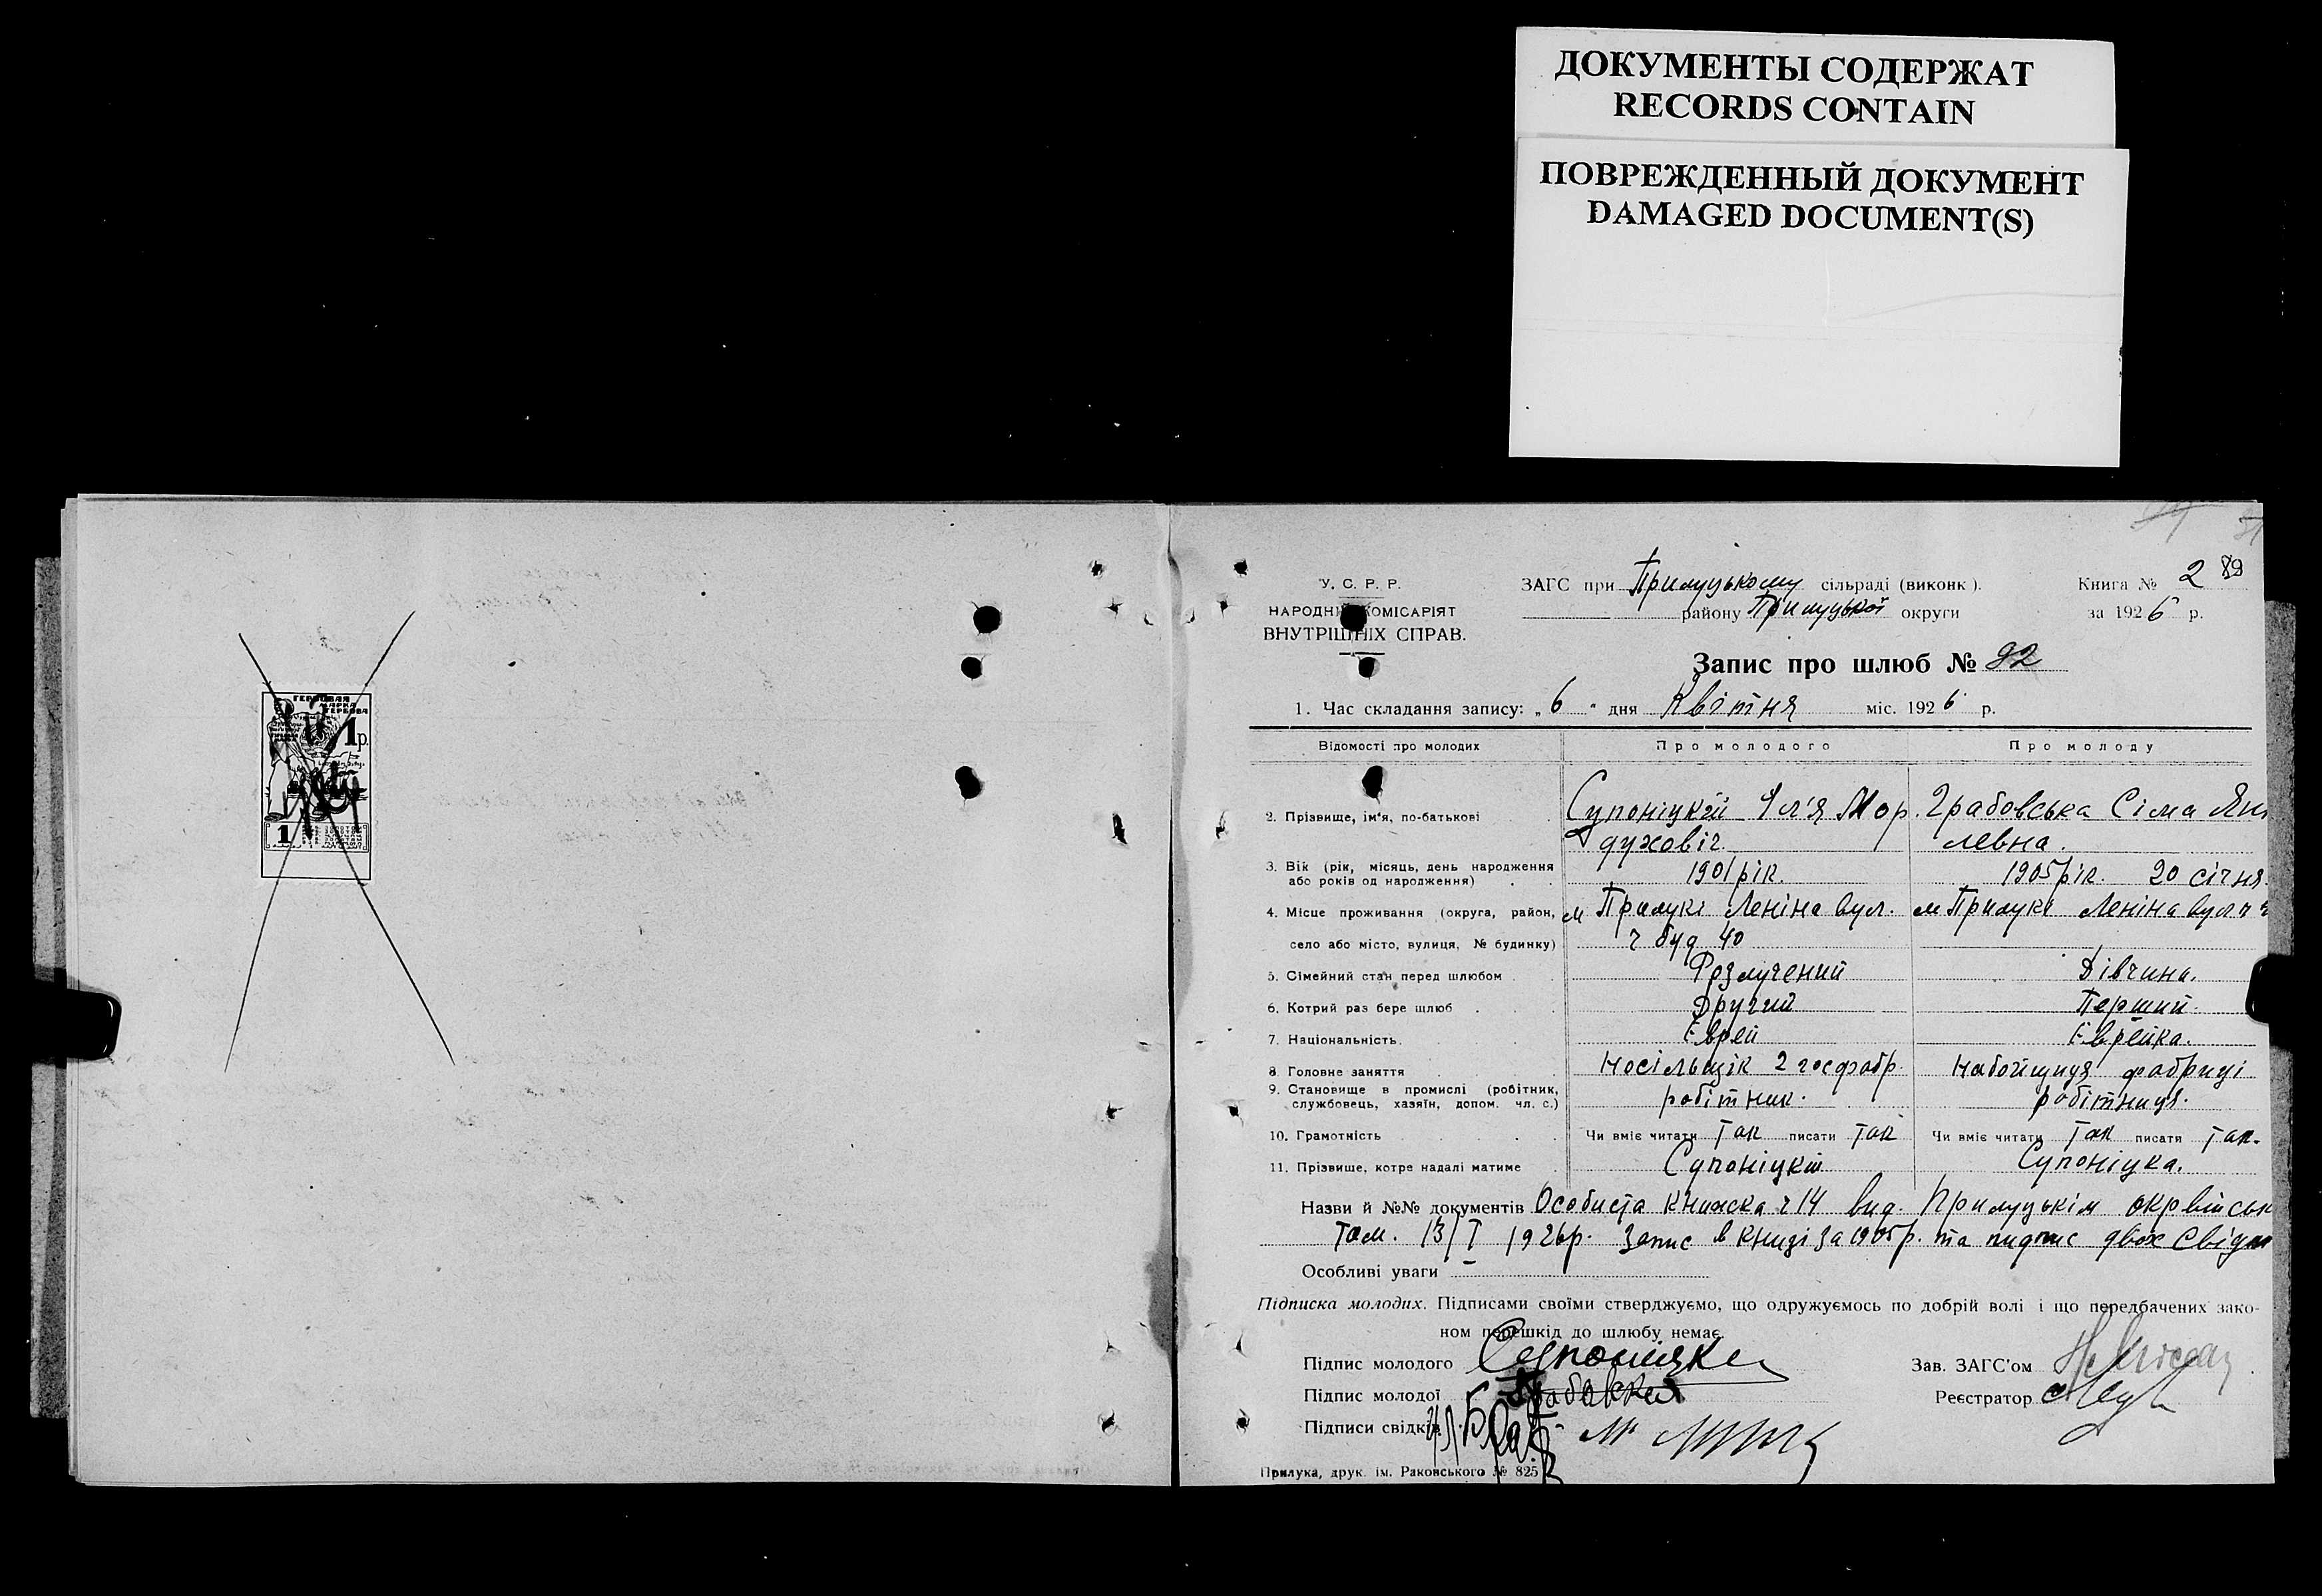 ДОКУМЕНТЫ СОДЕРЖАТ
RECORDS CONTAIN
ПОВРЕЖДЕННЫЙ ДОКУМЕНТ
DAMAGED DOCUMENT(S)
1 р.
1
У. С. Р. Р.
НАРОДНІЙ КОМІСАРІЯТ
ВНУТРІШНІХ СПРАВ.
ЗАГС при Прилуцькому сільраді (виконк).
району Прилуцької округи
Книга № 2 89
за 1926 р.
Запис про шлюб № 92
1. Час складання запису: „6" дня Квітня міс. 1926 р.
Відомості про молодих Про молодого Про молоду
2. Прізвище, ім'я, по-батькові Супоніцкій Іл'я Мор Грабовська Сіма Ян
духовіч левна.
3. Вік (рік, місяць, день народження
або років од народження) 1901 рік. 1905 рік. 20 січня.
4. Місце проживання (округа, район, м Прилукі Леніна вул. м Прилукі Леніна вул
село або місто, вулиця, № будинку) ч буд 40
5. Сімейний стан перед шлюбом Розлучений Дівчина.
6. Котрий раз бере шлюб Другий Перший.
7. Національність. Єврей Єврейка.
8. Головне заняття Носільщік 2 госфабр. Набойщиця фабриці
9. Становище в промислі (робітник,
службовець, хазяїн, допом. чл. с.) робітник. робітниця.
10. Грамотність Чи вміє читати Так писати Так Чи вміє читати Так писати Так.
11. Прізвише, котре надалі матиме Супоніцкій Супоніцка.
Назви й №№ документів Особиста книжска ч 14 вид. Прилуцькім окрвійськ
том. 13/I 1926р. Запис в книзі за 1905р. та пидпис двох Свідк
Особливі уваги
Підписка молодих. Підписами своїми стверджуємо, що одружуємось по добрій волі і що передбачених зако-
ном перешкід до шлюбу немає.
Підпис молодого Супоницки
Підпис молодої Грабовская
Підписи свідків
Зав. ЗАГС'ом
Реєстратор
Прилука, друк. ім. Раковського № 825